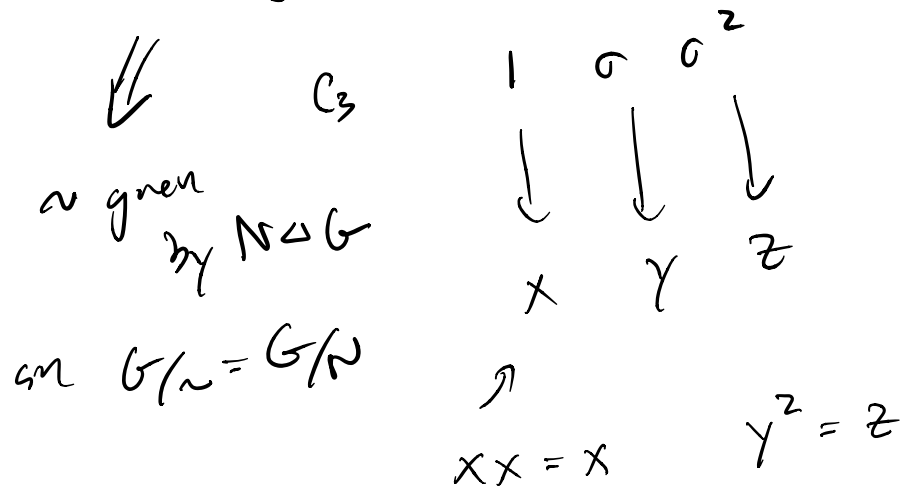 C₃ 1 σ σ²
~ given
by N ⊲ G
x y z
G/~ = G/N
xx = x y² = z